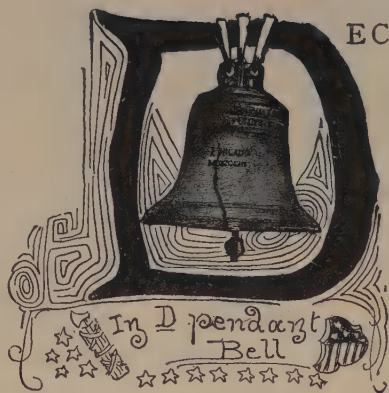 D EC
In D pendant
Bell